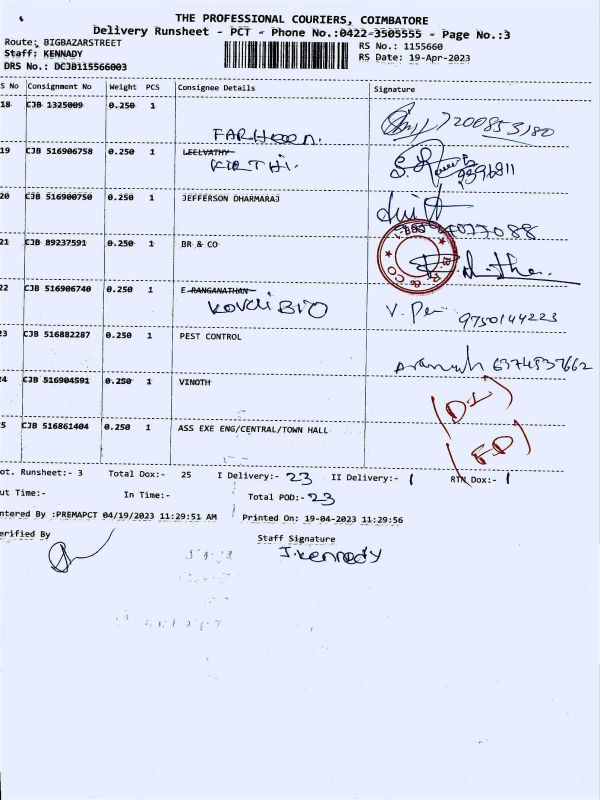 THE PROFESSIONAL COURIERS, COIMBATORE
Delivery Runsheet - PCT - Phone No.:0422-3505555 - Page No.:3
Route: BIGBAZARSTREET
RS No.: 1155660
Staff: KENNADY
RS Date: 19-Apr-2023
DRS No.: DCJB115566003
S No Consignment No Weight PCS Consignee Details Signature
18 CJB 1325009 0.250 1
FARHOON.
19 CJB 516906758 0.250 1 LEELVATHY
KIRTHI.
20 CJB 516900750 0.250 1 JEFFERSON DHARMARAJ
21 CJB 89237591 0.250 1 BR & CO
22 CJB 516906740 0.250 1 E RANGANATHAN
Kovai BIO V. 9750144223
23 CJB 516882287 0.250 1 PEST CONTROL
6374837662
24 CJB 516904591 0.250 1 VINOTH
25 CJB 516861404 0.250 1 ASS EXE ENG/CENTRAL/TOWN HALL
ot. Runsheet:- 3 Total Dox:- 25 I Delivery:- 23 II Delivery:- 1 RTN Dox:- 1
ut Time:- In Time:- Total POD:- 23
ntered By :PREMAPCT 04/19/2023 11:29:51 AM Printed On: 19-04-2023 11:29:56
erified By Staff Signature
J.kennedy